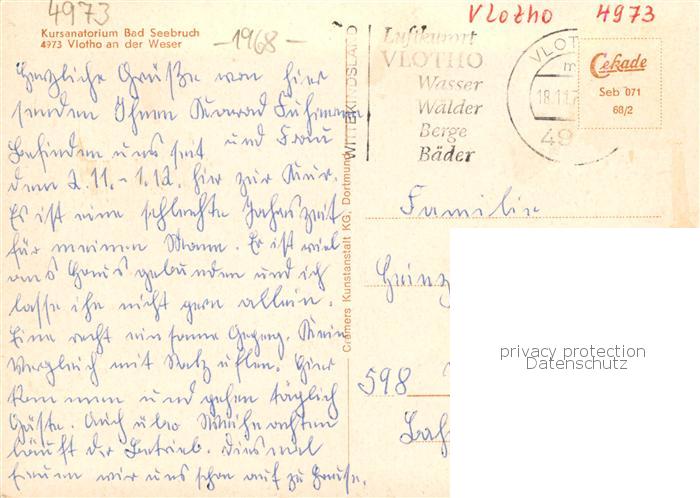 4973
Kursanatorium Bad Seebruch
4973 Vlotho an der Weser
-1968-
Vlotho 4973
Luftkurort
VLOTHO
Wasser
Wälder
Berge
Bäder
WITTEKINDSLAND
VLOT
18.11.7
49
Cekade
Seb 071
68/2
Herzliche Grüße von hier
senden Ihnen Konrad Fuhrmann
und Frau
befinden uns seit
dem 2.11. - 1.12. hier zur Kur.
Es ist eine schlechte Jahreszeit
für meinen Mann. Er ist viel
ans Haus gebunden und ich
lasse ihn nicht gern allein.
Eine recht einsame Gegend. Kein
Vergleich mit Salzuflen. Hier
kommen und gehen täglich
Gäste. Auch über Weihnachten
läuft der Betrieb. Diesmal
freuen wir uns schon auf zu Hause.
Cramers Kunstanstalt KG, Dortmund
Familie
Heinz
598
privacy protection
Datenschutz